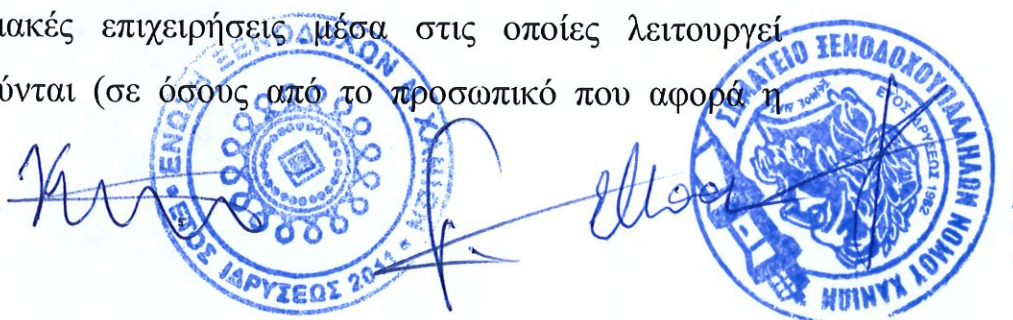 ιακές επιχειρήσεις μέσα στις οποίες λειτουργεί
ύνται (σε όσους από το προσωπικό που αφορά η
ΕΝΩΣΗ ΞΕΝΟΔΟΧΩΝ
ΕΤΟΣ ΙΔΡΥΣΕΩΣ 2011
ΣΩΜΑΤΕΙΟ ΞΕΝΟΔΟΧΟΥΠΑΛΛΗΛΩΝ ΝΟΜΟΥ ΧΑΝΙΩΝ
ΕΤΟΣ ΙΔΡΥΣΕΩΣ 1982